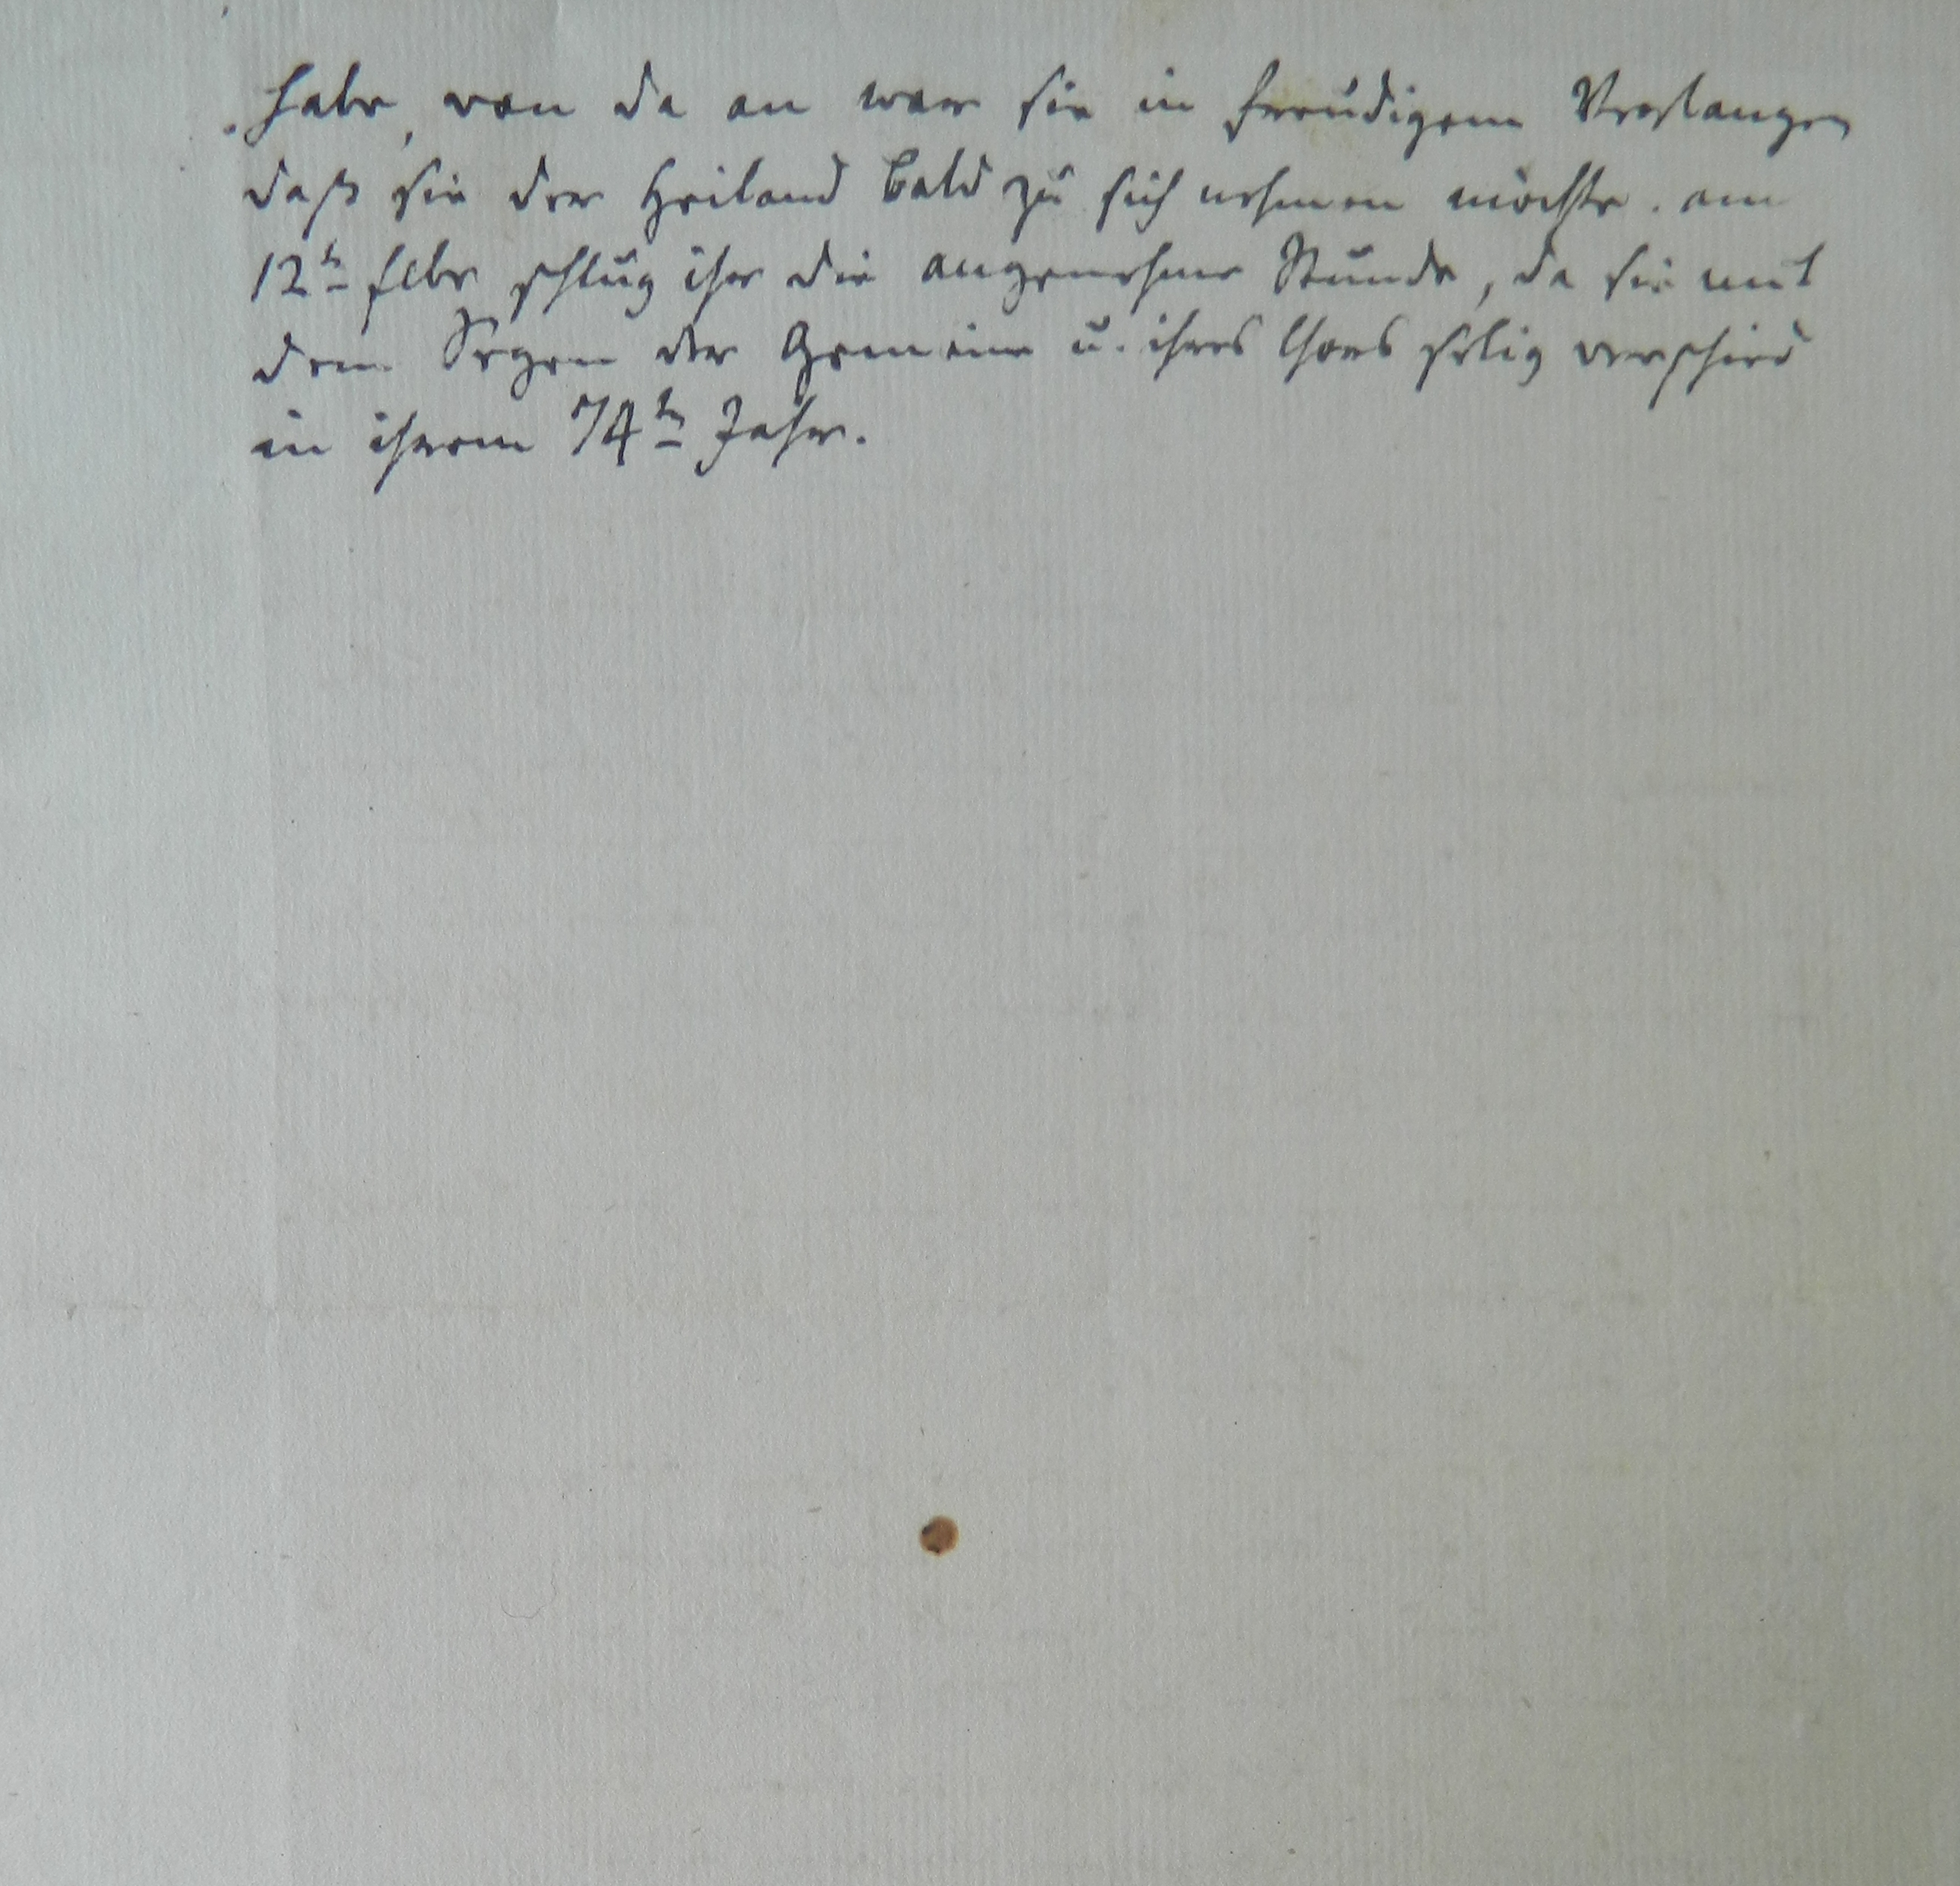 habe, von da an war sie in freudigem Verlangen
daß sie der Heiland bald zu sich nehmen möchte. am
12tn febr schlug ihr die angenehme Stunde, da sie mit
dem Segen der Gemeine u. ihres Chors selig verschied
in ihrem 74tn Jahr.